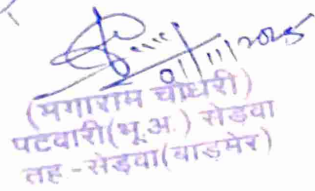 01/11/2025
(मगाराम चौधरी)
पटवारी(भू.अ.) सेड़वा
तह-सेड़वा(बाड़मेर)